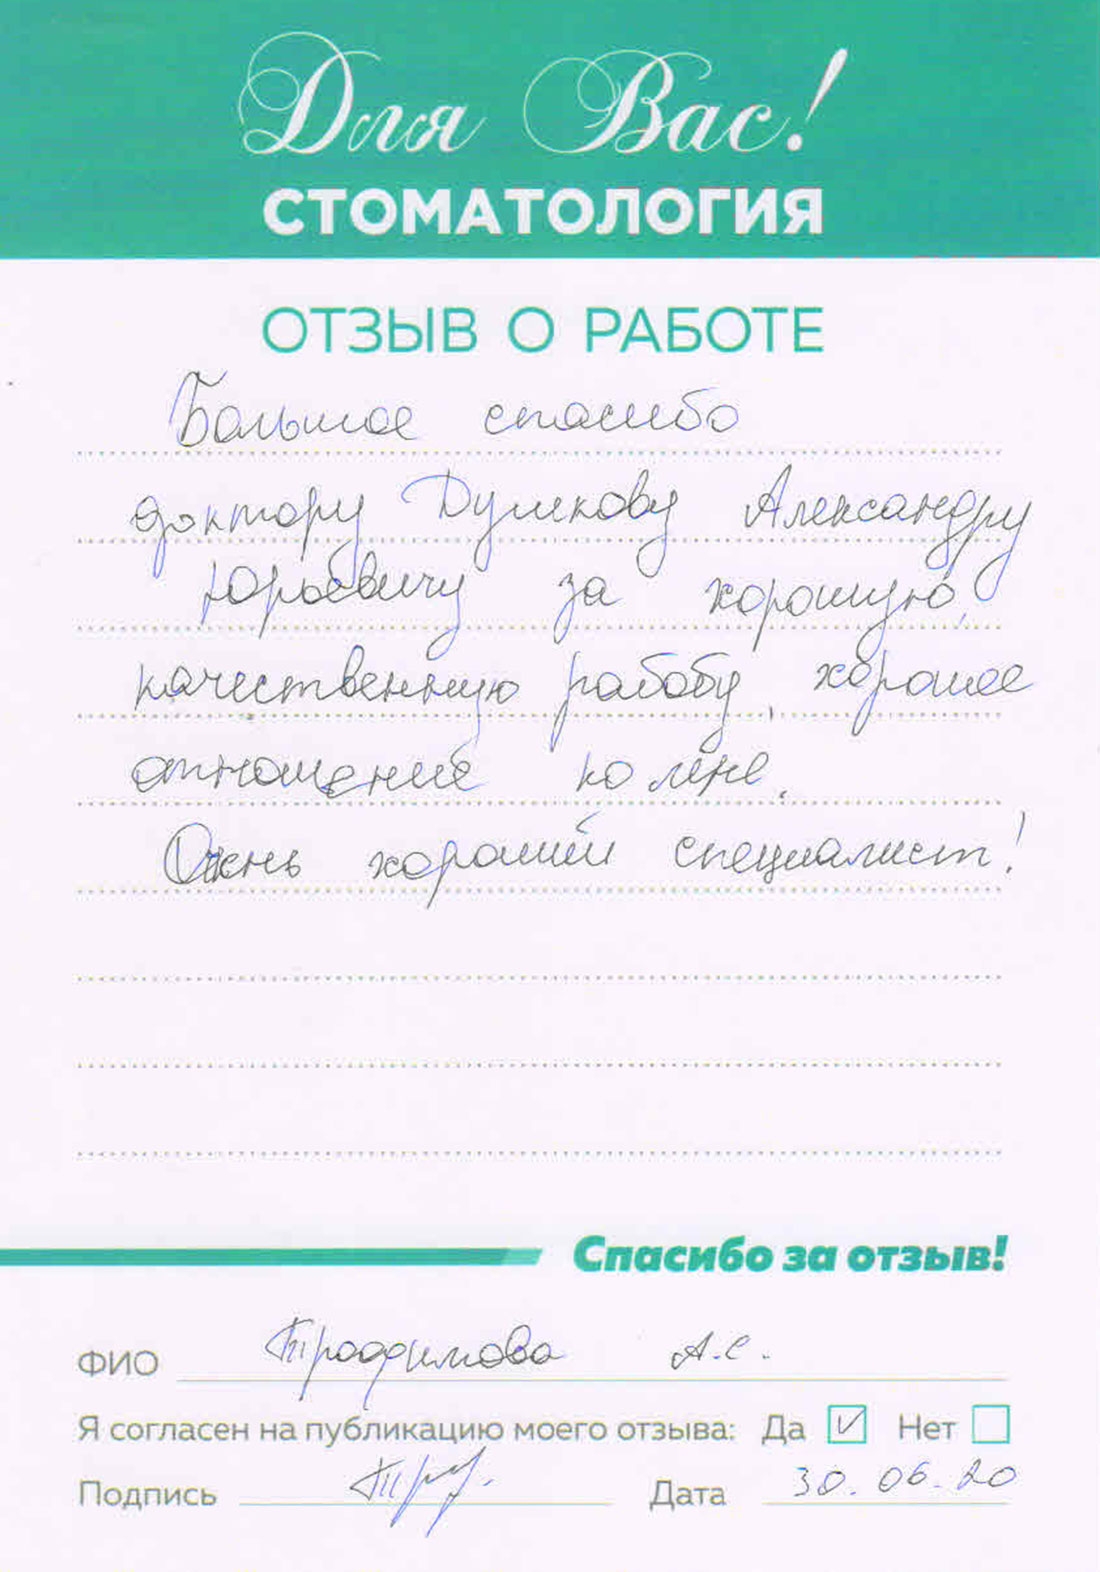 Для Вас!
СТОМАТОЛОГИЯ
ОТЗЫВ О РАБОТЕ
Большое спасибо
доктору Александру
Юрьевичу за хорошую,
качественную работу, хорошее
отношение ко мне.
Очень хороший специалист!
Спасибо за отзыв!
ФИО Трофимова А.С.
Я согласен на публикацию моего отзыва: Да ☑ Нет ☐
Подпись Дата 30.06.20